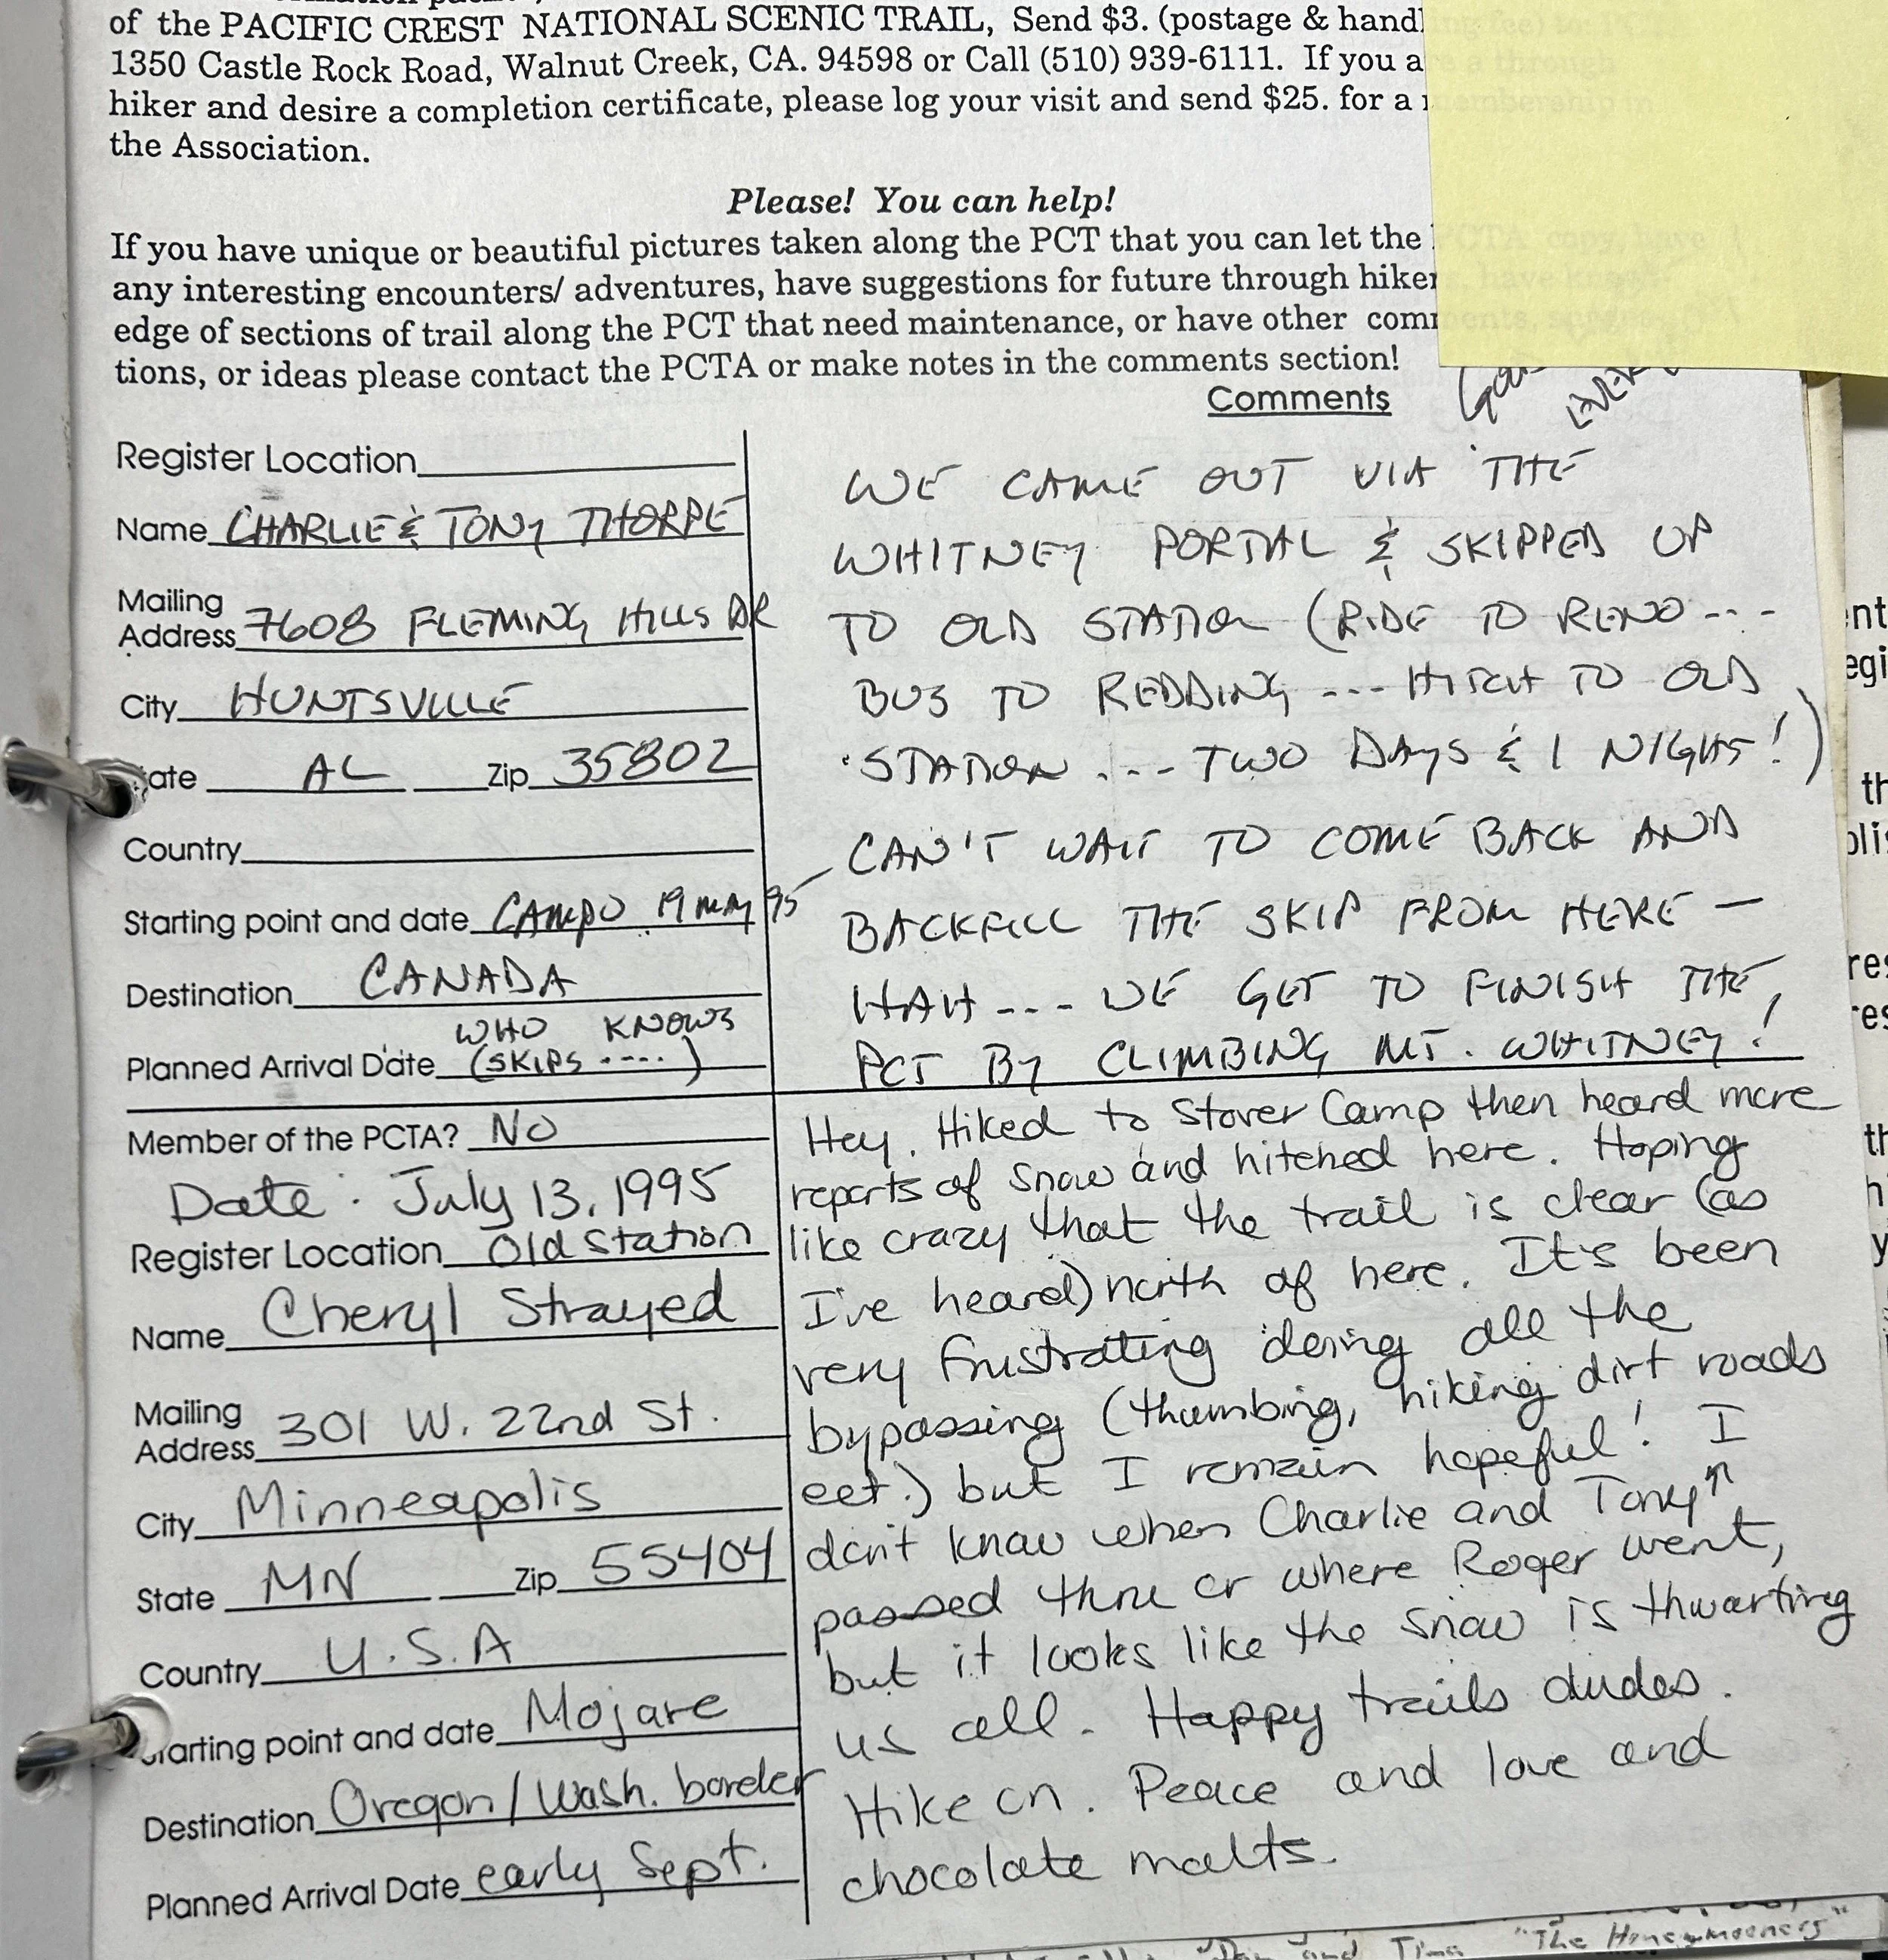 of the PACIFIC CREST NATIONAL SCENIC TRAIL, Send $3. (postage & handl
1350 Castle Rock Road, Walnut Creek, CA. 94598 or Call (510) 939-6111. If you a
hiker and desire a completion certificate, please log your visit and send $25. for a
the Association.
Please! You can help!
If you have unique or beautiful pictures taken along the PCT that you can let the
any interesting encounters/ adventures, have suggestions for future through hiker
edge of sections of trail along the PCT that need maintenance, or have other com
tions, or ideas please contact the PCTA or make notes in the comments section!
Comments
Register Location
Name CHARLIE & TONY THORPE
Mailing
Address 7608 FLEMING HILLS DR
City HUNTSVILLE
State AL Zip 35802
Country
Starting point and date CAMPO 19 MAY 95
Destination CANADA
WHO KNOWS
Planned Arrival Date (SKIPS ----)
WE CAME OUT VIA THE
WHITNEY PORTAL & SKIPPED UP
TO OLD STATION (RIDE TO RENO ---
BUS TO REDDING --- HITCH TO OLD
STATION --- TWO DAYS & 1 NIGHT!)
CAN'T WAIT TO COME BACK AND
BACKFILL THE SKIP FROM HERE —
HAH --- WE GET TO FINISH THE
PCT BY CLIMBING MT. WHITNEY!
Member of the PCTA? NO
Date: July 13, 1995
Register Location Old Station
Name Cheryl Strayed
Mailing
Address 301 W. 22nd St.
City Minneapolis
State MN Zip 55404
Country U.S.A
Starting point and date Mojave
Destination Oregon/Wash. border
Planned Arrival Date early Sept.
Hey. Hiked to Stover Camp then heard more
reports of snow and hitched here. Hoping
like crazy that the trail is clear (as
I've heard) north of here. It's been
very frustrating doing all the
bypassing (thumbing, hiking dirt roads
ect.) but I remain hopeful! I
don't know when Charlie and Tony ↑
passed thru or where Roger went,
but it looks like the snow is thwarting
us all. Happy trails dudes.
Hike on. Peace and love and
chocolate malts.
and Tina "The Honeymooners"